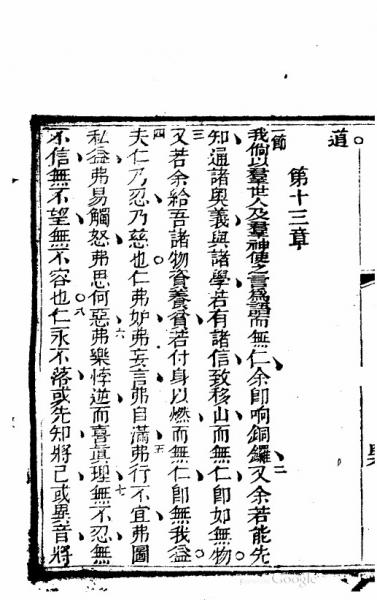 道
第十三章
一節 我倘以羣世人及羣神使之言爲語而無仁余即響銅鑼 二 又余若能先
知通諸奧義與諸學若有諸信致移山而無仁即如無物
三 又若余給吾諸物資養貧若付身以燃而無仁即無我益
四 夫仁乃忍乃慈也仁弗妒弗妄言弗自滿 五 弗行不宜弗圖
私益弗易觸怒弗思何惡 六 弗樂悖逆而喜眞理 七 無不忍無
不信無不望無不容也 八 仁永不落或先知將已或異音將
Google